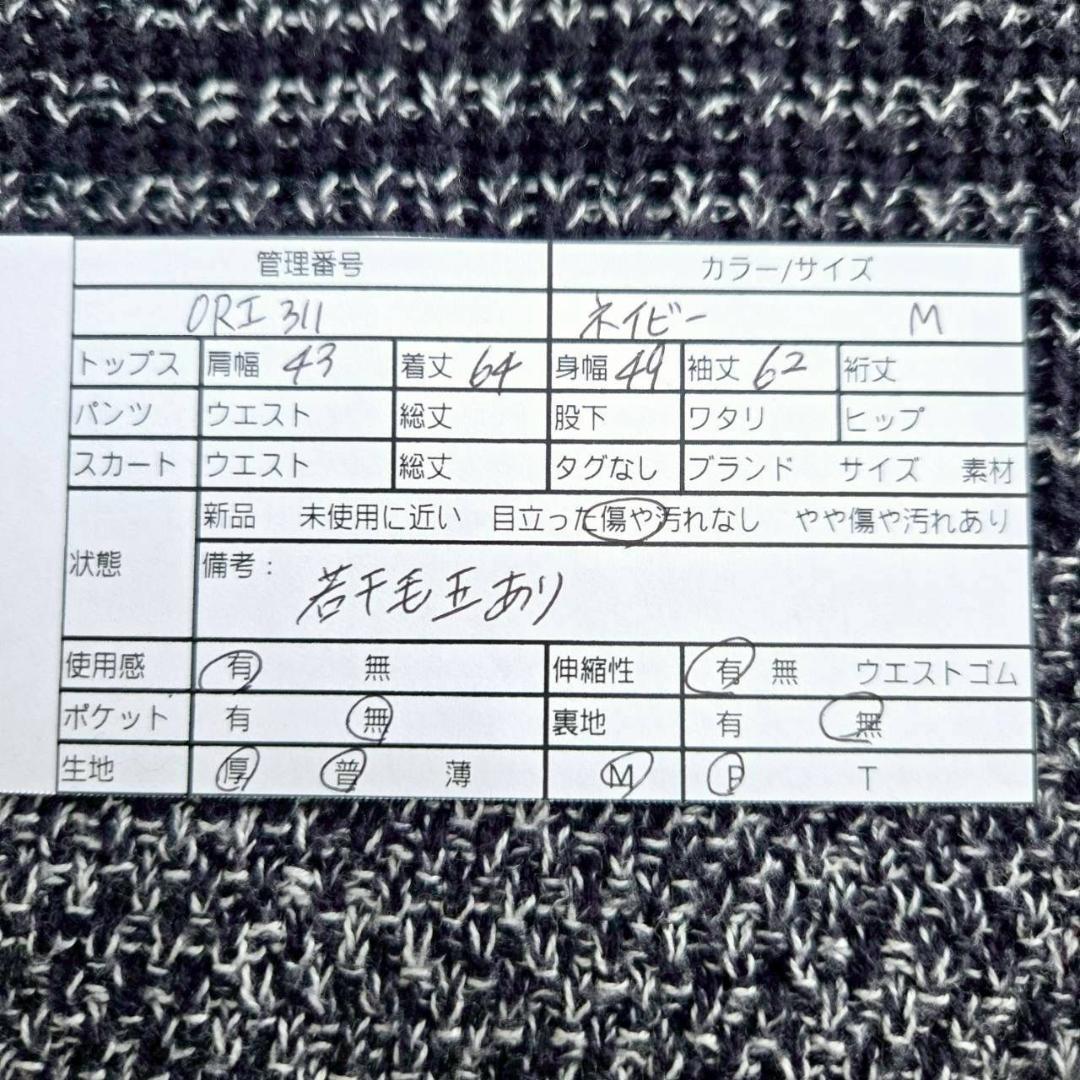 管理番号 カラー/サイズ
ORI 311 ネイビー M
トップス 肩幅 43 着丈 64 身幅 49 袖丈 62 裄丈
パンツ ウエスト 総丈 股下 ワタリ ヒップ
スカート ウエスト 総丈 タグなし ブランド サイズ 素材
新品 未使用に近い 目立った傷や汚れなし やや傷や汚れあり
状態 備考:
若干毛玉あり
使用感 有 無 伸縮性 有 無 ウエストゴム
ポケット 有 無 裏地 有 無
生地 厚 普 薄 M P T